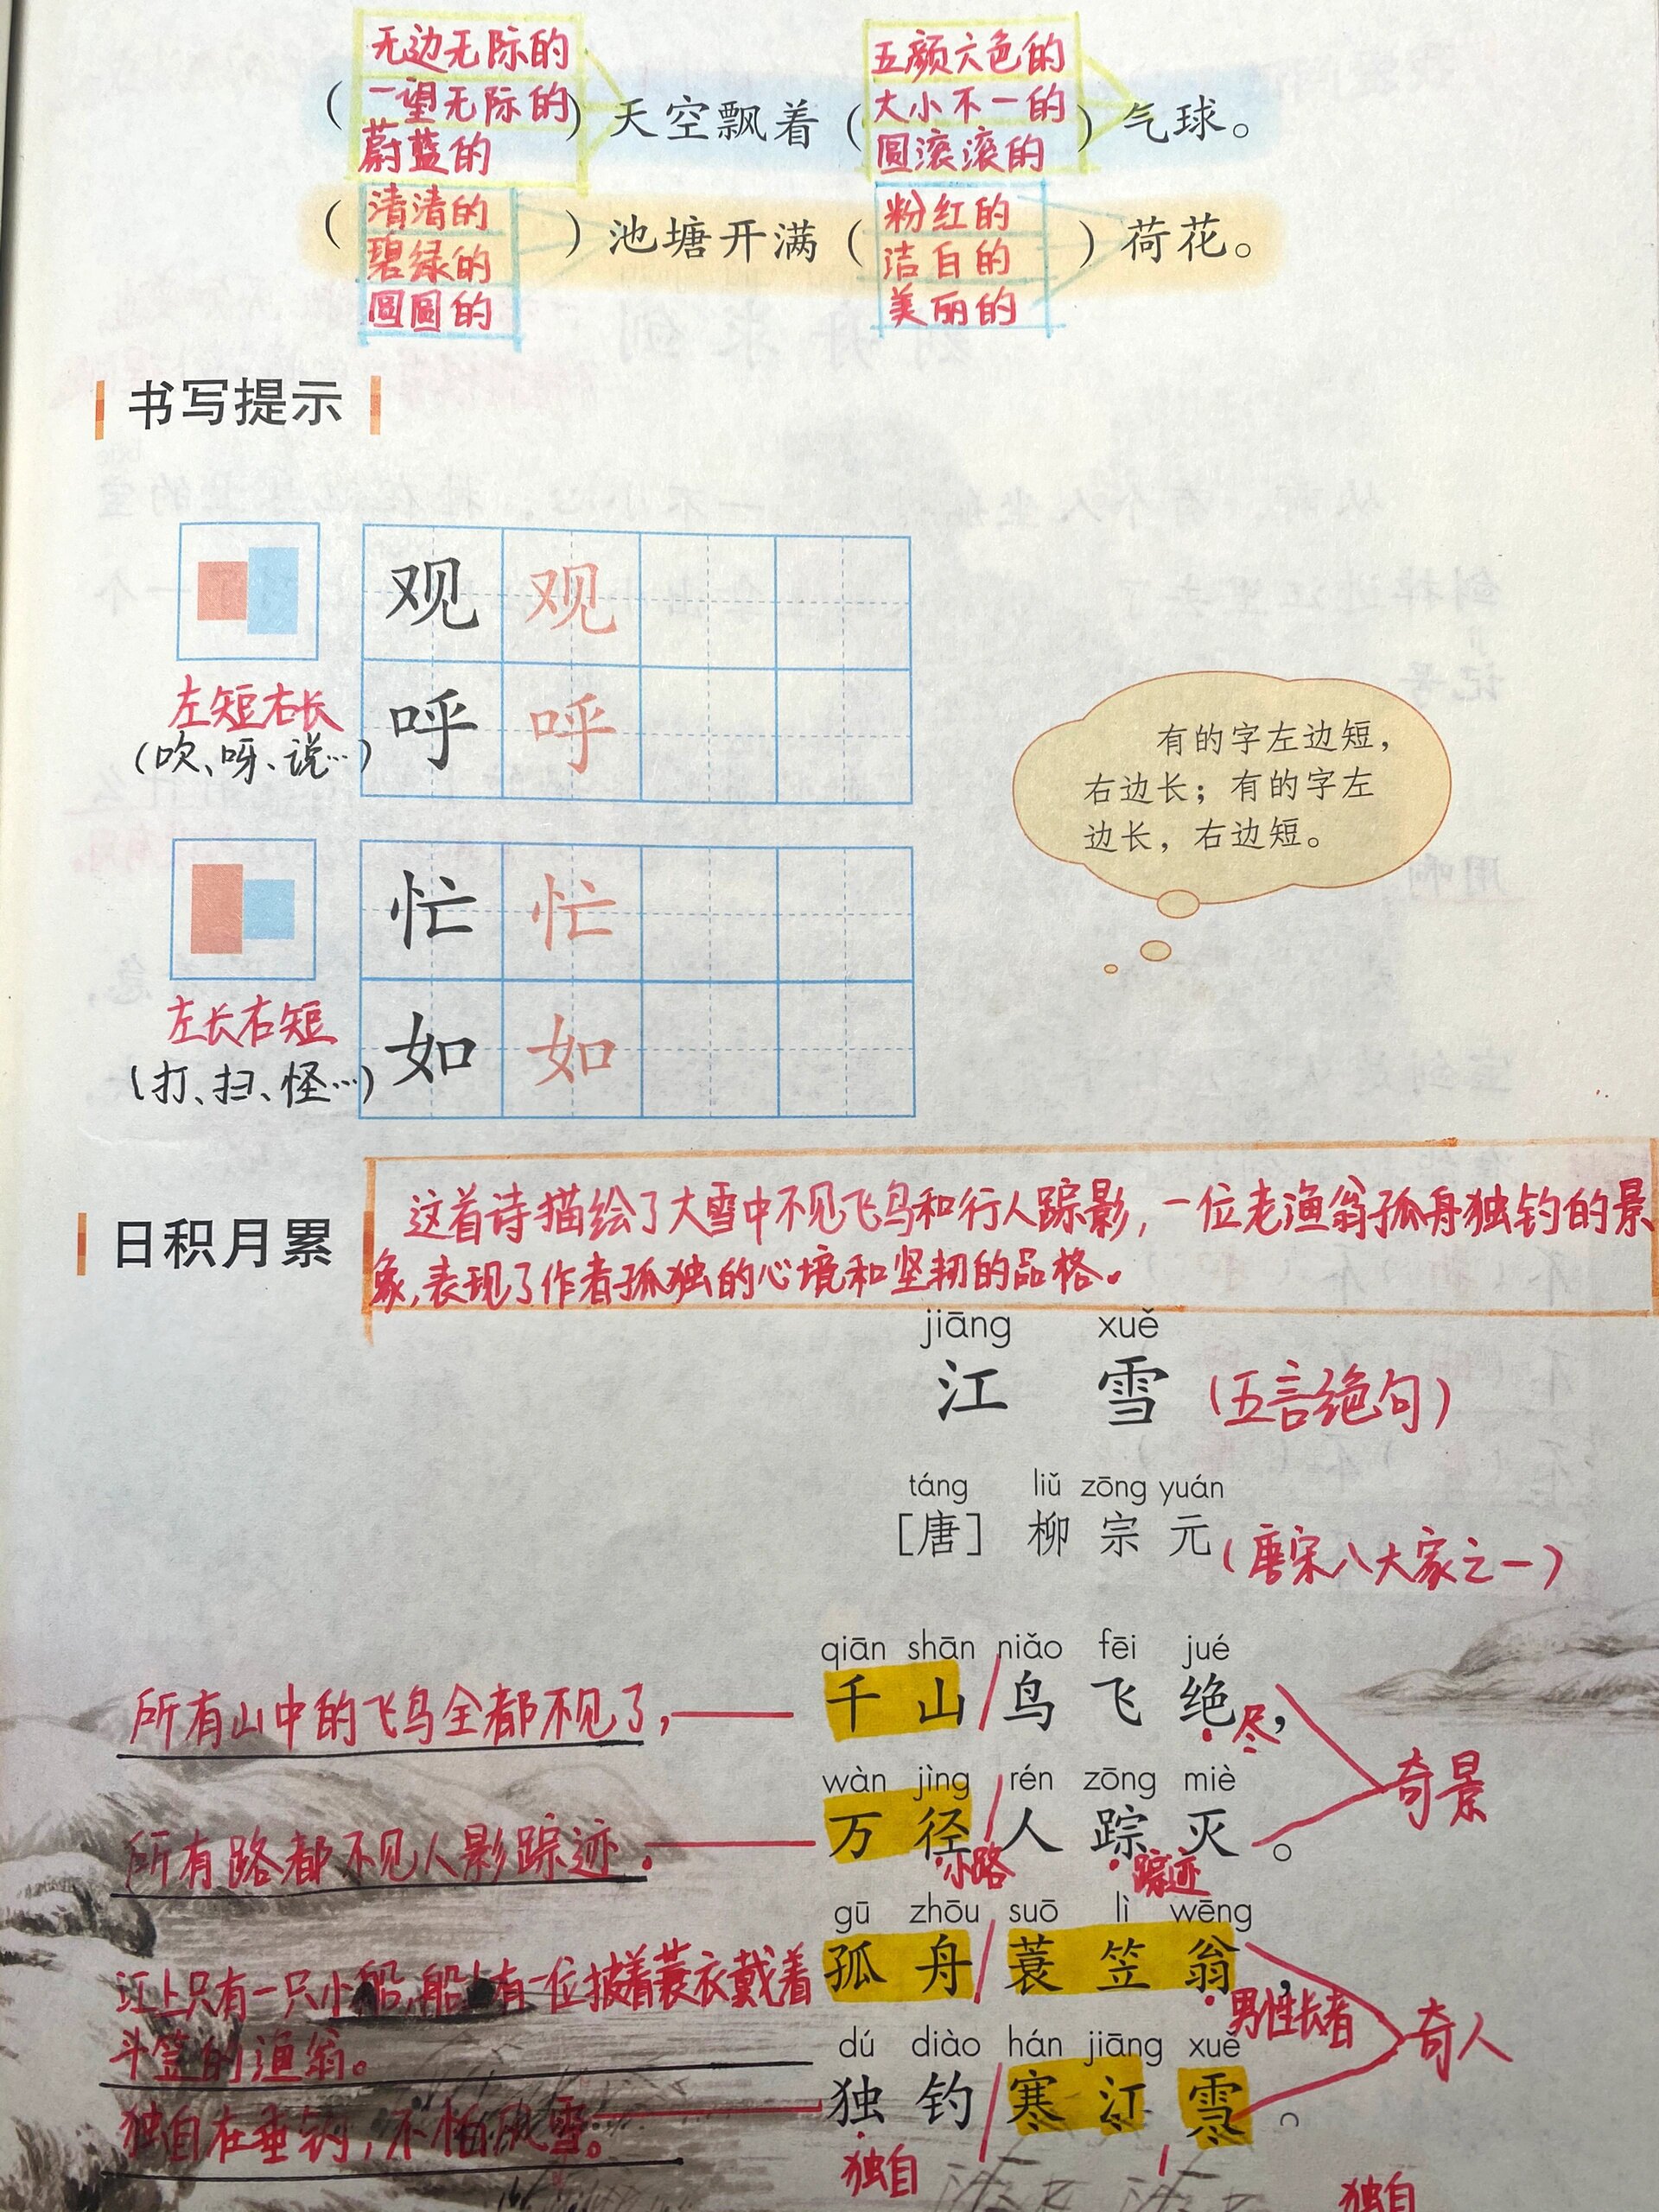 无边无际的
一望无际的
蔚蓝的
五颜六色的
大小不一的
圆滚滚的
( )天空飘着( )气球。
清清的
碧绿的
圆圆的
粉红的
洁白的
美丽的
( )池塘开满( )荷花。
书写提示
观 观
呼 呼
左短右长
(吹、呀、说…)
有的字左边短，
右边长；有的字左
边长，右边短。
忙 忙
如 如
左长右短
(打、扫、怪…)
日积月累
这首诗描绘了大雪中不见飞鸟和行人踪影，一位老渔翁孤舟独钓的景
象，表现了作者孤独的心境和坚韧的品格。
jiāng xuě
江 雪 (五言绝句)
táng liǔ zōng yuán
[唐] 柳宗元 (唐宋八大家之一)
qiān shān niǎo fēi jué
千山/鸟飞绝，
尽
所有山中的飞鸟全都不见了，
wàn jìng rén zōng miè
万径/人踪灭。
小路 踪迹
所有路都不见人影踪迹。
奇景
gū zhōu suō lì wēng
孤舟/蓑笠翁，
男性长者
江上只有一只小船，船上有一位披着蓑衣戴着
斗笠的渔翁。
dú diào hán jiāng xuě
独钓/寒江雪。
独自
独自在垂钓，不怕风雪。
奇人
独自